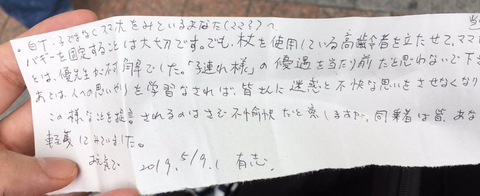 ・自子ではなくスマホをみているあなた(ママ?)へ
バギーを固定することは大切です。でも、杖を使用している高齢者を立たせて、ママ
とは、優先 でした。「子連れ様」の優遇を当たり前だと思わないで下さ
あとは人への思いやりを学習なされば、皆 に迷惑と不快な思いをさせなくなり
この様なことを されるのはさぞ不愉快だと察しますが、同乗者は皆、あな
軽蔑していました。
2019.5/9.( 有志